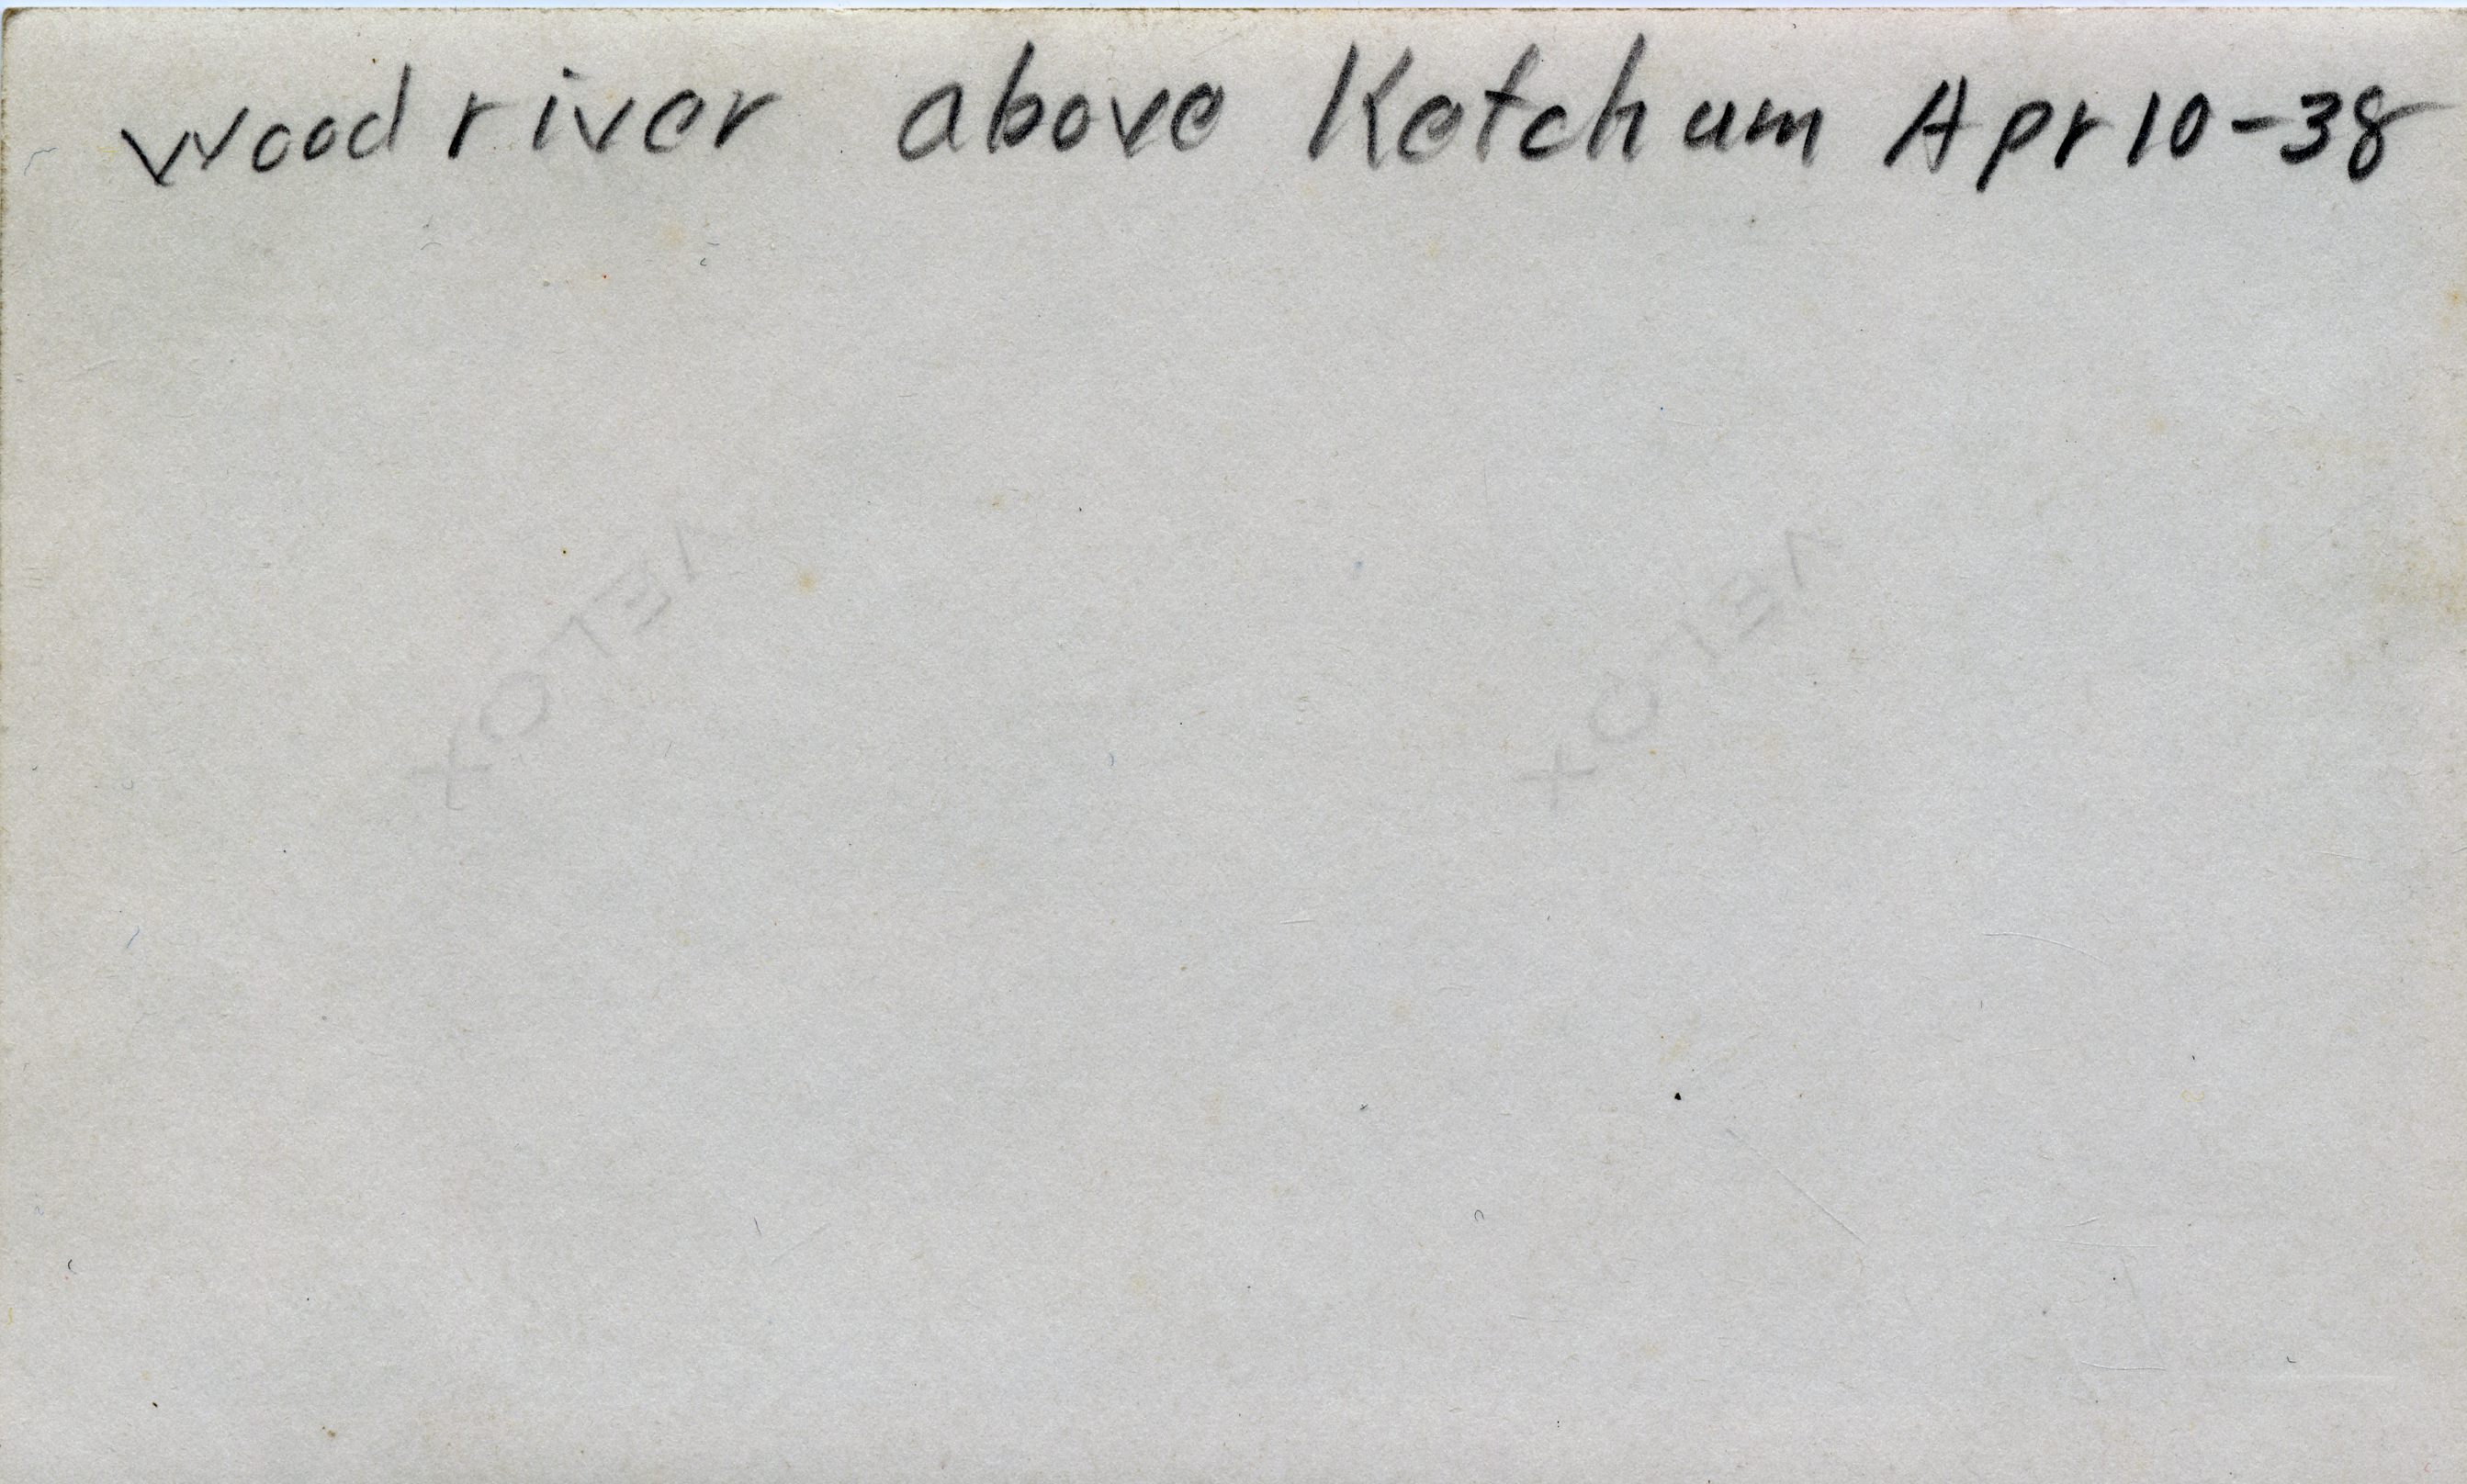 Wood river above Ketchum Apr 10-38
VELOX
VELOX